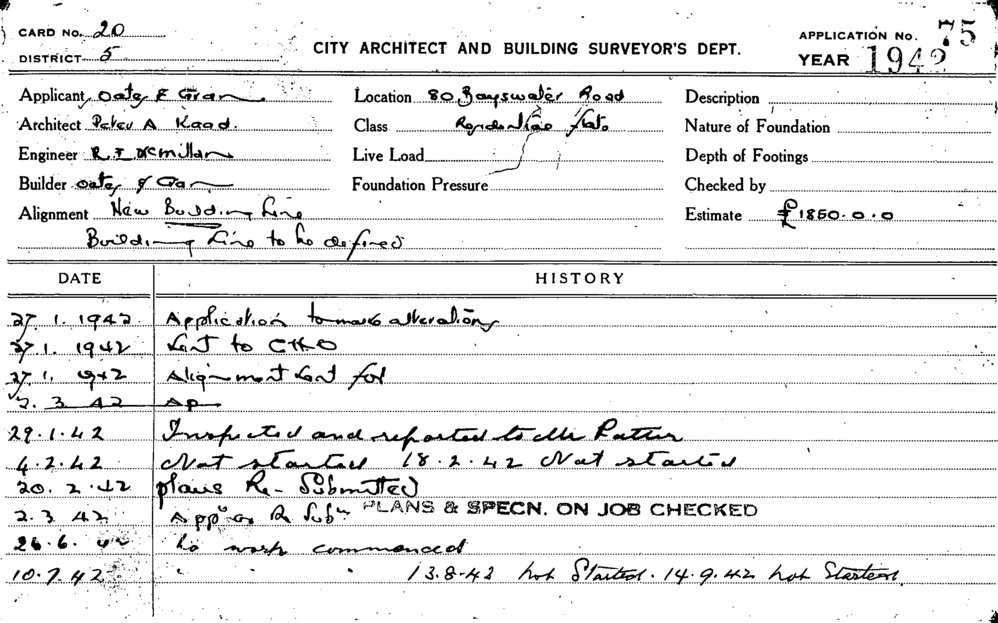 CARD No. 20
DISTRICT 5
CITY ARCHITECT AND BUILDING SURVEYOR'S DEPT.
APPLICATION No. 75
YEAR 1942
Applicant Oates &
Location 80 Bayswater Road
Description
Architect Peter A Kaad.
Class Residential flats
Nature of Foundation
Engineer R. F. McMillan
Live Load
Depth of Footings
Builder &
Foundation Pressure
Checked by
Alignment New Building Line
Estimate £1850.0.0
Building Line to be defined
DATE HISTORY
27. 1. 1942 Application to make alterations
27. 1. 1942 Sent to CHO
27. 1. 1942 Alignment Sent for
2. 3. 42 Ap
29.1.42 Inspected and reported to Mr Potter
4.2.42 Not started 18.2.42 Not started
20. 2. 42 plans Re-Submitted
2. 3. 42 Appd as Re Subn PLANS & SPECN. ON JOB CHECKED
26.6. 42 No work commenced
10.7.42 " " " 13.8.42 not Started. 14.9.42 not Started.